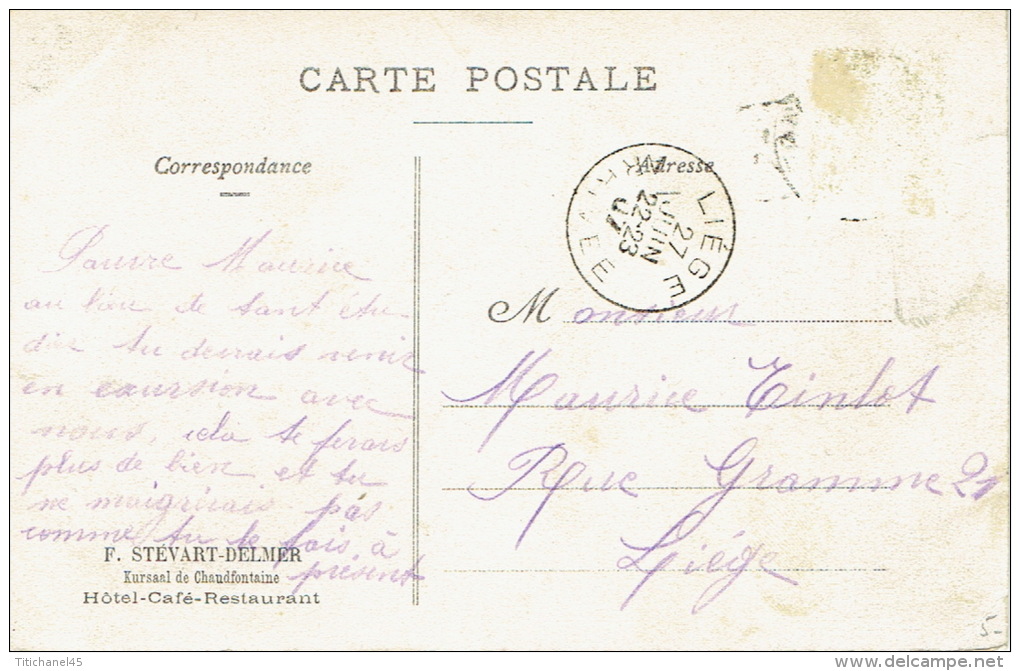 CARTE POSTALE
Correspondance
Adresse
LIÉGE
27
JUIN
22-23
07
ARRIVEE
Pauvre Maurice
au lieu de tant étu-
dier tu devrais venir
en excursion avec
nous, cela te ferais
plus de bien et tu
ne maigrirais pas
comme tu le fais à
présent
Monsieur
Maurice Tinlot
Rue Gramme 21
Liége
F. STÉVART-DELMER
Kursaal de Chaudfontaine
Hôtel-Café-Restaurant
5-
Titichanel45
delcampe.net